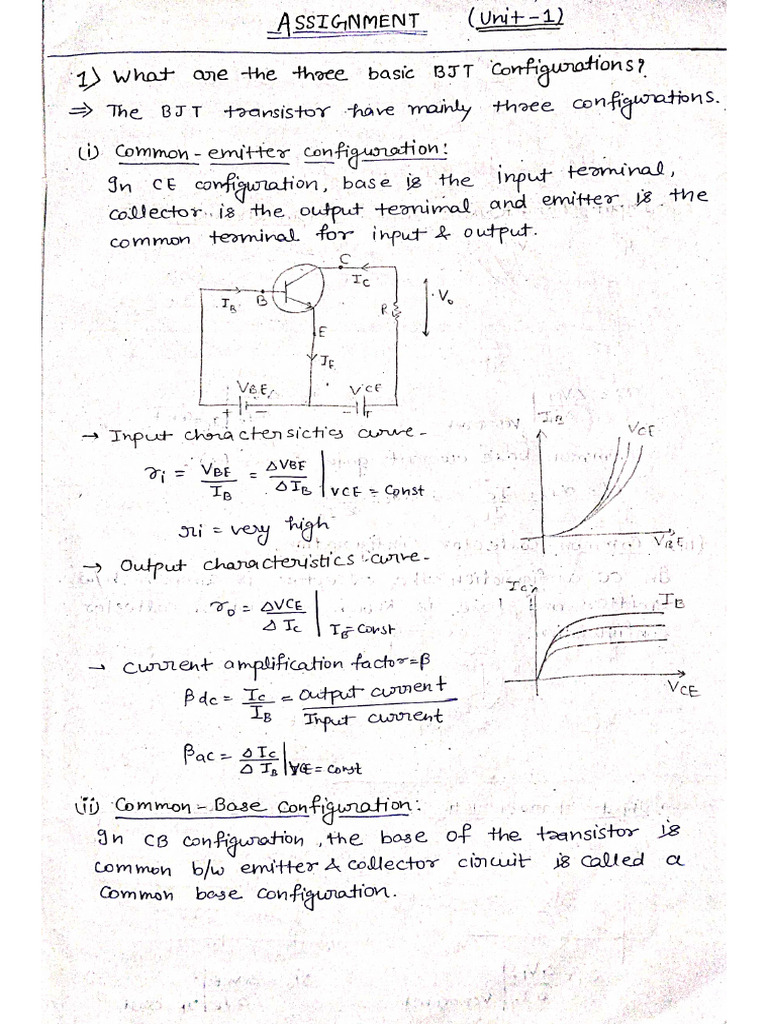 ASSIGNMENT (Unit-1)
1) What are the three basic BJT Configurations?
⇒ The BJT transistor have mainly three configurations.
(i) Common-emitter configuration:
In CE configuration, base is the input terminal,
collector is the output teonimal and emitter is the
common terminal for input & output.
C
IC
IB
B
R
Vo
E
IE
VBE
VCE
+ −
− +
→ Input charactersictics curve-
ri = VBE/IB = ΔVBE/ΔIB | VCE = Const
ri = very high
IB
VCE
VBE
→ Output characteristics curve-
ro = ΔVCE/ΔIc | IB = Const
Ic
IB
VCE
→ Current amplification factor = β
βdc = Ic/IB = Output current/Input current
βac = ΔIc/ΔIB | VCE = Const
(ii) Common-Base Configuration:
In CB configuration, the base of the transistor is
common b/w emitter & collector circuit is called a
Common base configuration.